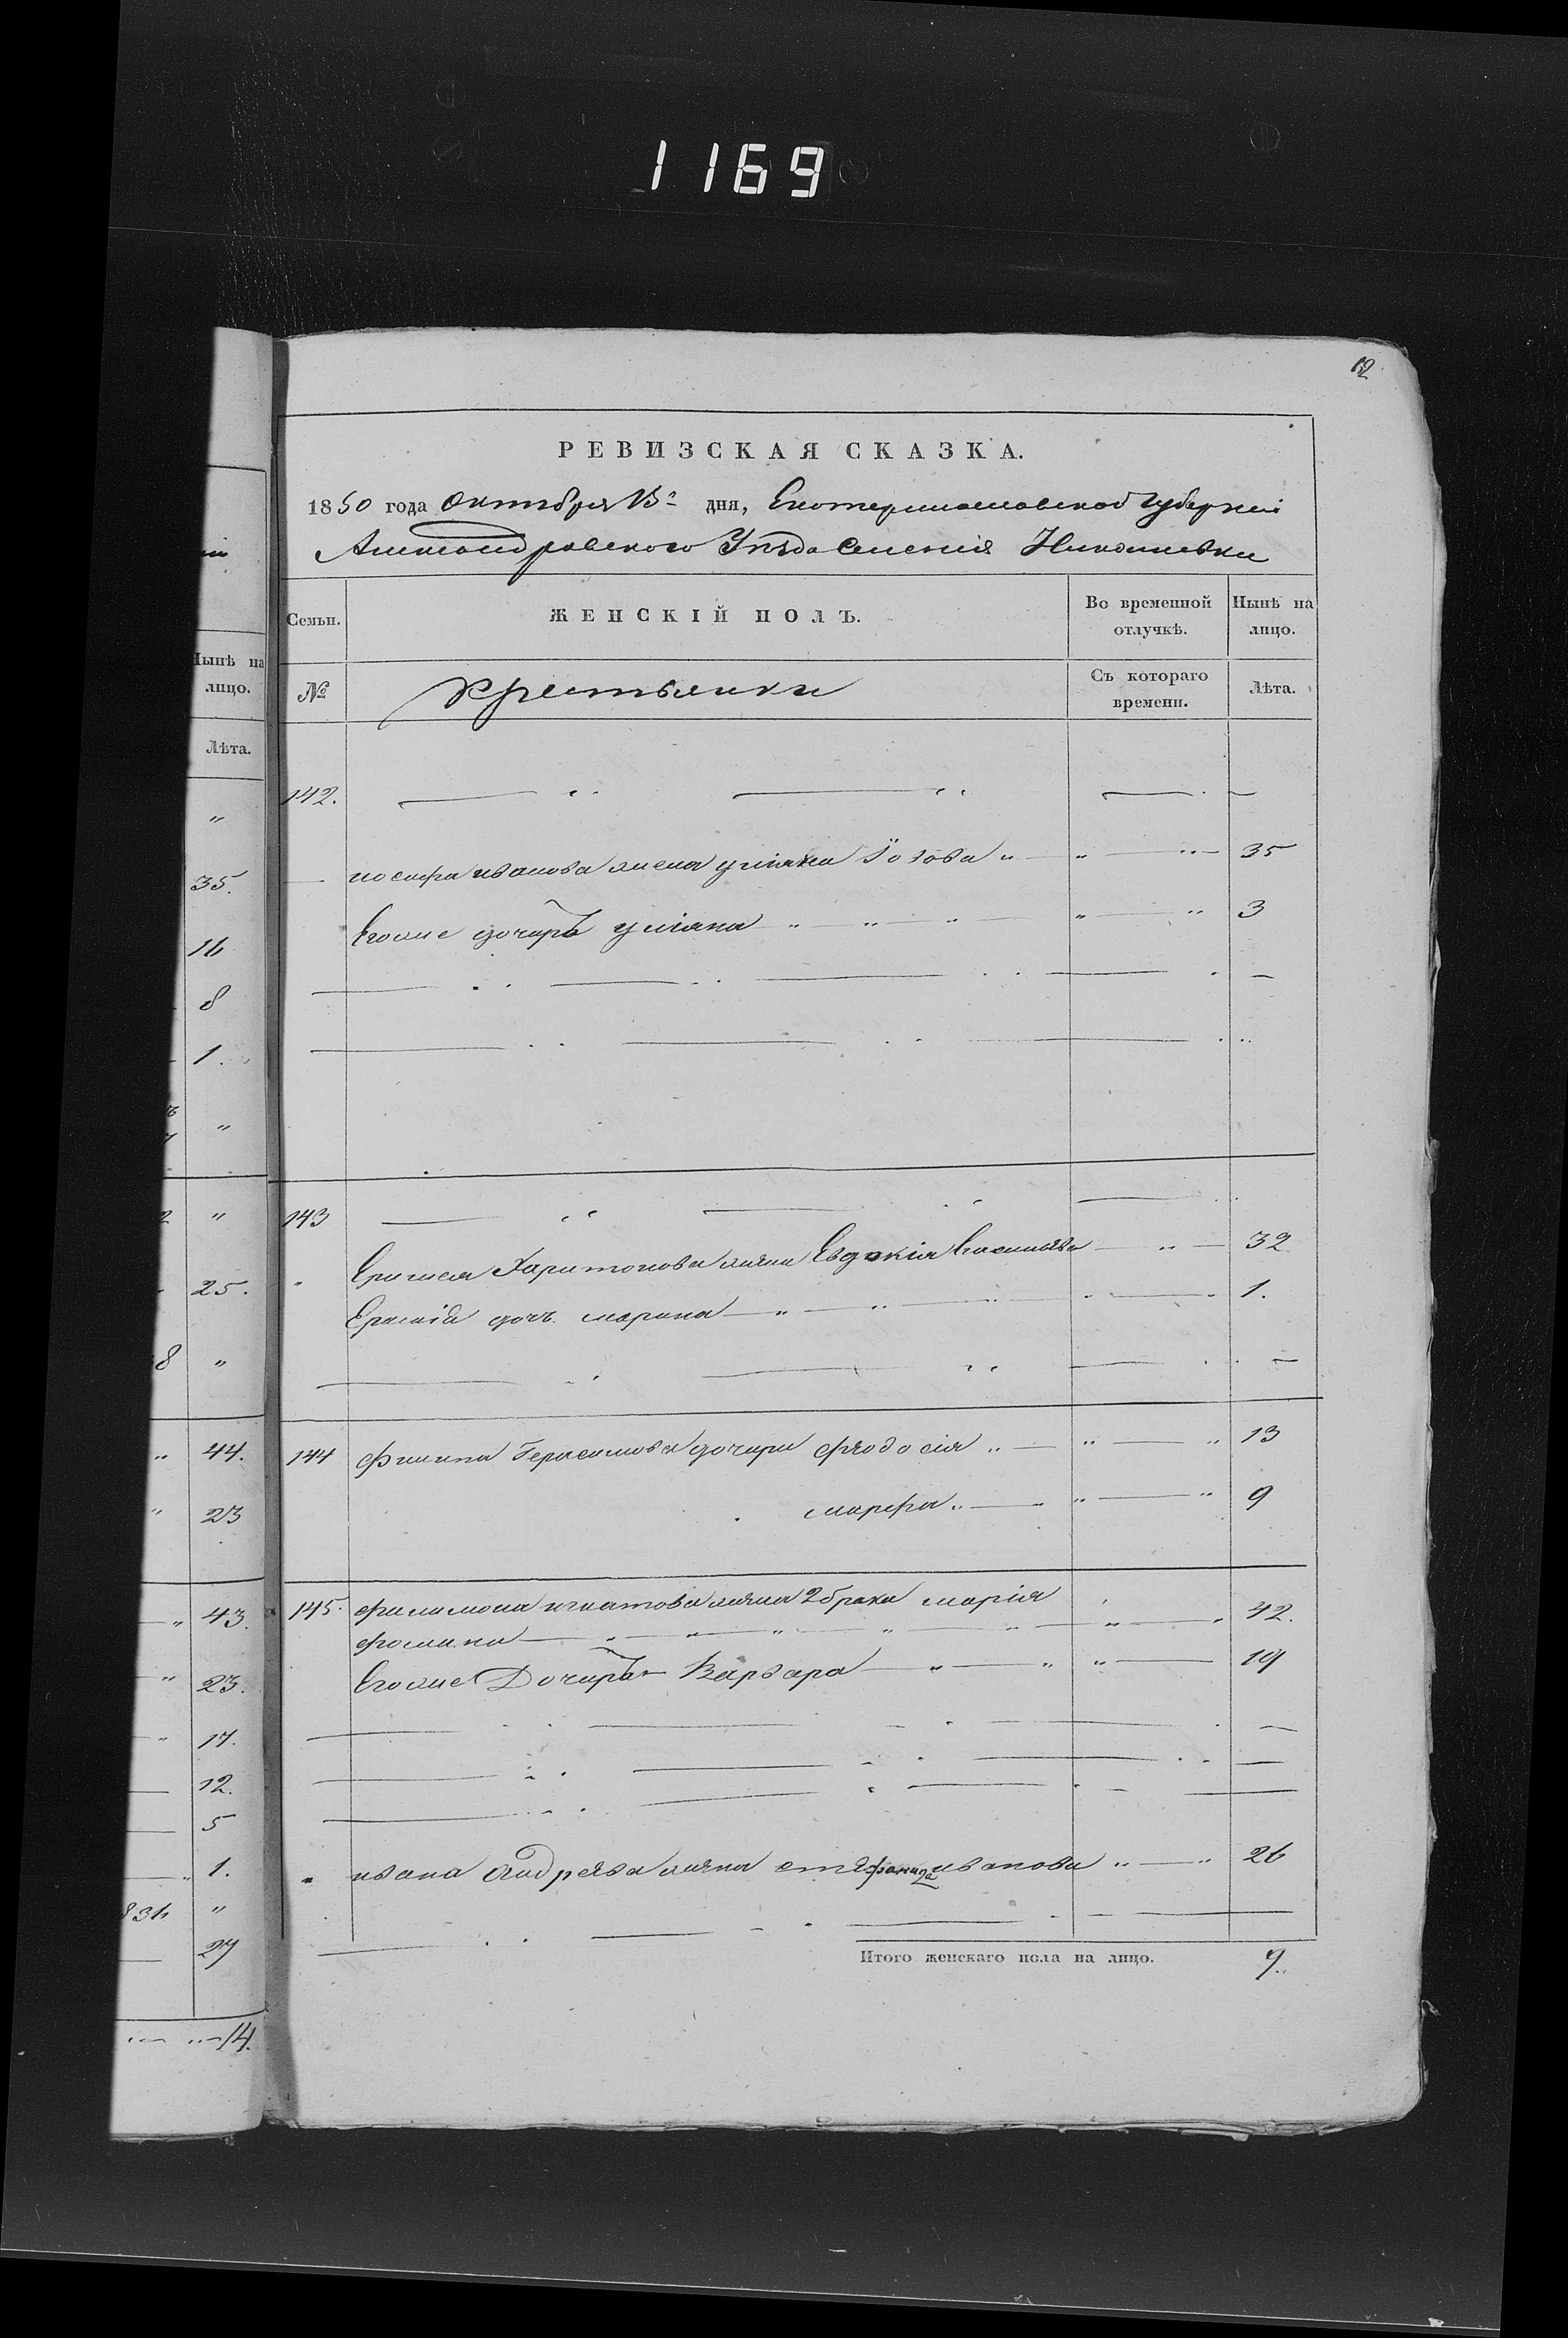 1169
12
РЕВИЗСКАЯ СКАЗКА.
1850 года Октября 13го дня, Екатеринославской губерніи
Александровского Уезда Селенія Николаевки
Семьи. ЖЕНСКІЙ ПОЛЪ. Во временной отлучкѣ. Нынѣ на лицо.
№ Крестьянки Съ котораго времени. Лѣта.
142.
иосифа иванова жена улияна 35
Егоже дочерь улияна 3
143
Харитонова жена Евдокія 32
дочь марина 1.
144 Филипа Герасимова дочери федосія 13
марфа 9
145. филимона игнатова жена 2 брака марія
фомина 42.
Егоже Дочерь Варвара 19
ивана Андреева жена стефанида иванова 26
Итого женскаго пола на лицо. 9.
Нынѣ на лицо.
Лѣта.
"
35.
16
8
1.
"
"
25.
8 "
44.
23
43.
23.
17.
12.
5
1.
"
27
14.